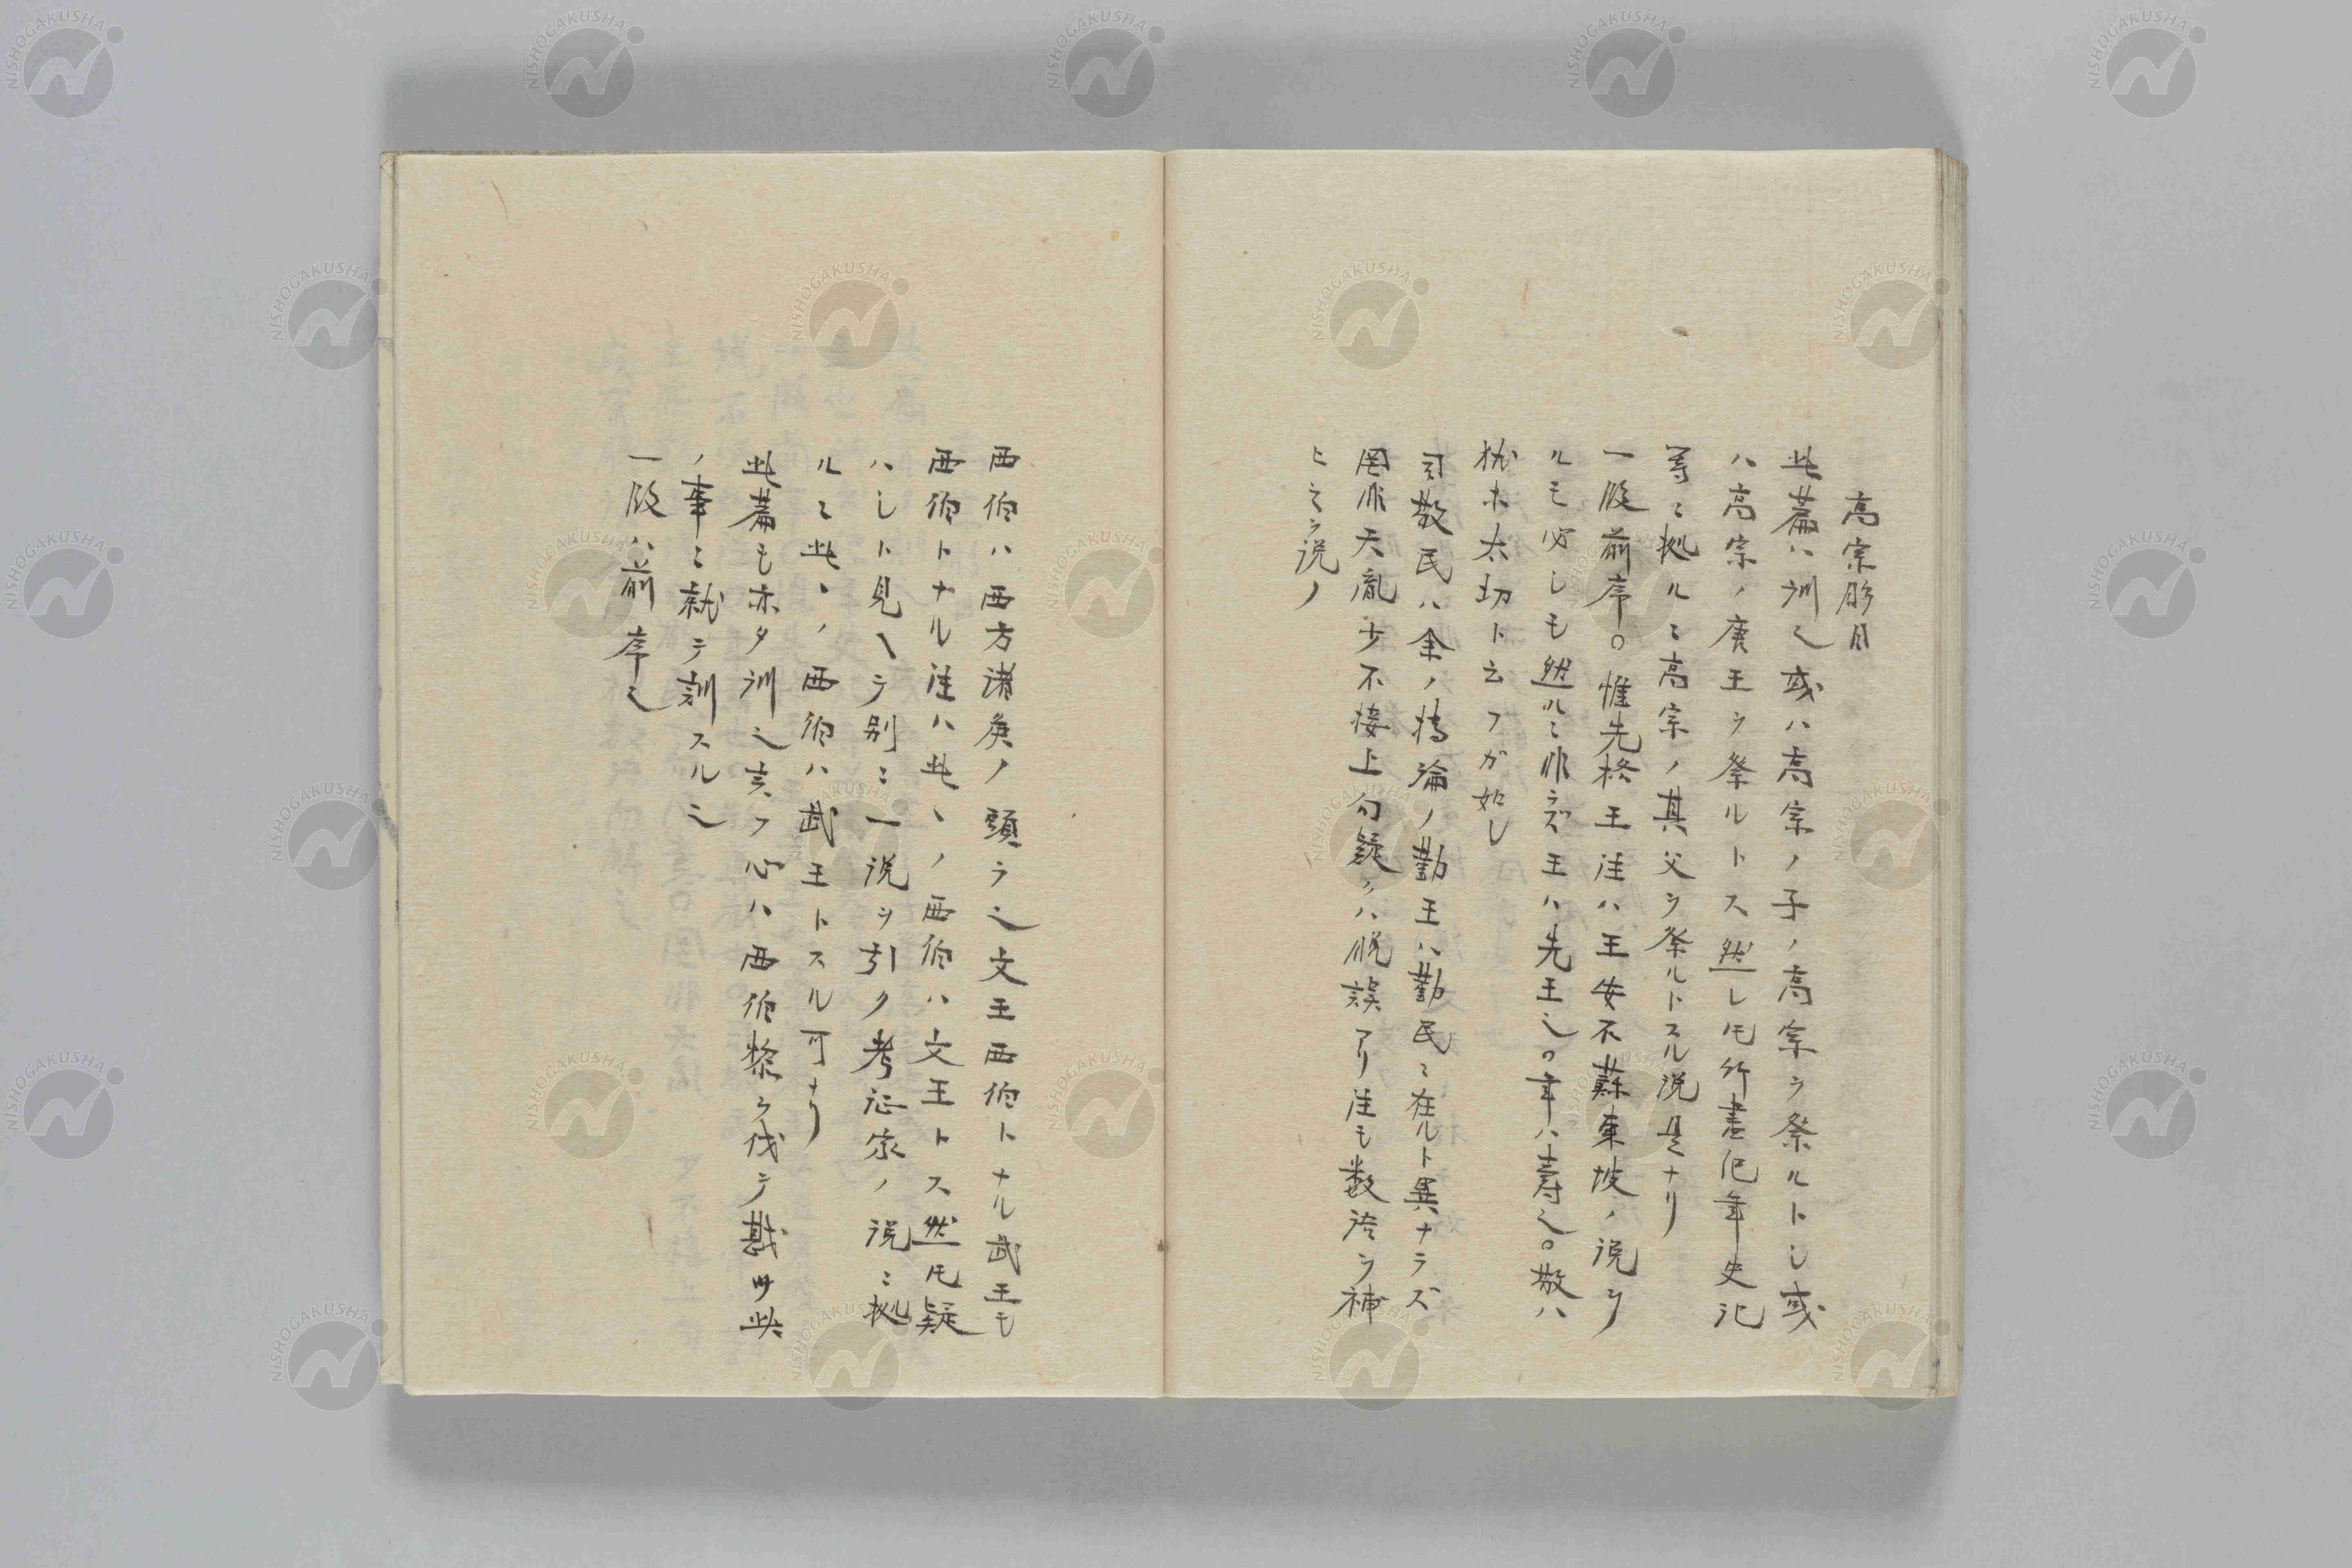 高宗肜日
此篇ハ訓也或ハ高宗ノ子ノ高宗ヲ祭ルトシ或
ハ高宗ノ庚王ヲ祭ルトス然レ𪜈竹書紀年史記
等ニ拠ルニ高宗ノ其父ヲ祭ルトスル説是ナリ
一段前序。惟先格王注ハ王安石蘇東坡ノ説ナリ
ルモ必シモ然ルニ非ズ王ハ先王也。年ハ壽也。敬ハ
猶ホ太切ト云フガ如シ
司敬民ハ余ノ持論ノ勤王ハ勤民ニ在ルト異ナラズ
罔非天胤少不接上句疑クハ脱誤アリ注モ数語ヲ補
ヒテ説ク
西伯ハ西方諸侯ノ頭ラ也文王西伯トナル武王モ
西伯トナル注ハ此ヽノ西伯ハ文王トス然𪜈疑
ハシト見ヘテ別ニ一説ヲ引ク考証家ノ説ニ拠
ルニ此ヽノ西伯ハ武王トスル可ナリ
此篇モ亦タ訓也言フ心ハ西伯黎ヲ伐テ戡ツ此
ノ事ニ就テ訓スル也
一段ハ前序也
NISHOGAKUSHA